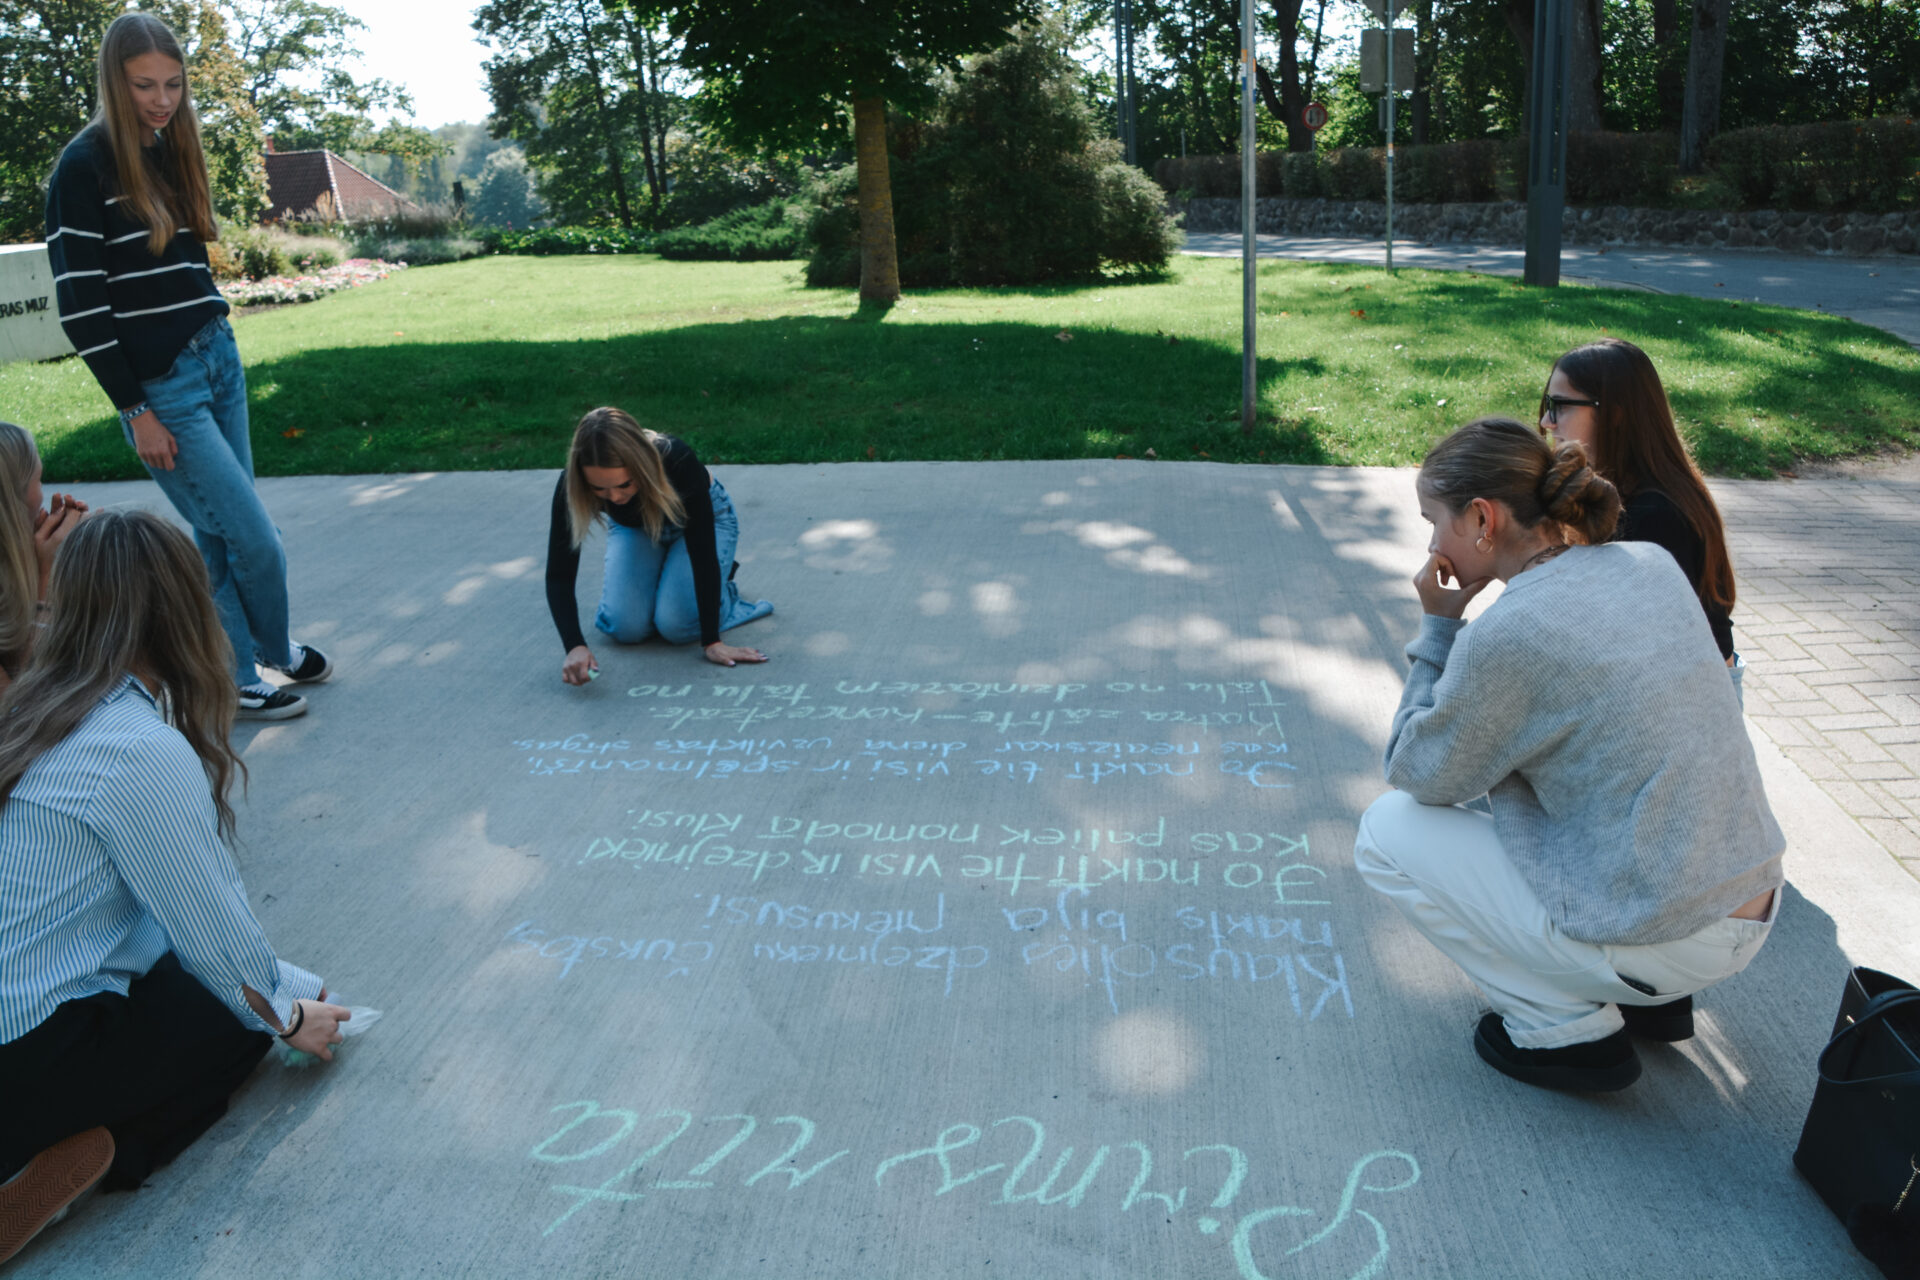 Pirms rīta
Klausoties dzejnieku čukstos,
nakts bija piekususi.
Jo naktī tie visi iR dzejnieki
kas paliek nomodā klusi.
Jo naktī tie visi ir spēlmanīši,
kas neaizskar dienā uzvilktas stīgas.
Katra zālīte - koncertzāle.
Tālu no dzintariem tālu no
RAS MUZ